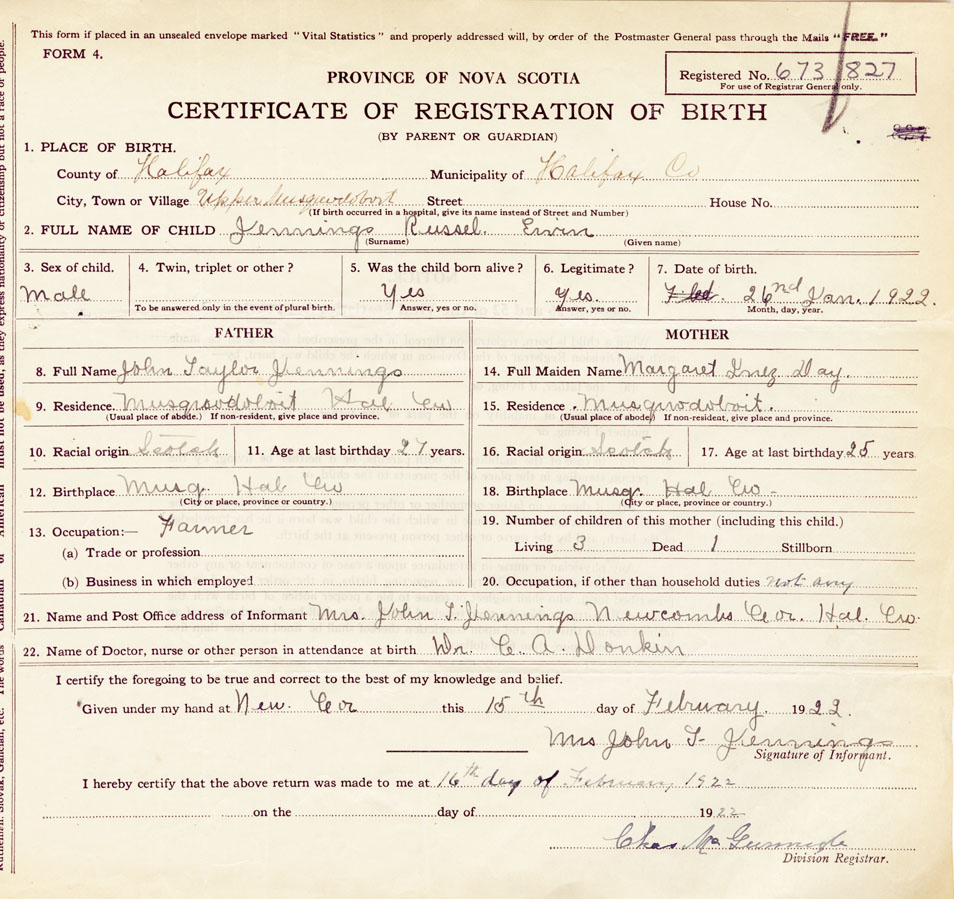 This form if placed in an unsealed envelope marked "Vital Statistics" and properly addressed will, by order of the Postmaster General pass through the Mails "FREE."
FORM 4.
PROVINCE OF NOVA SCOTIA
Registered No. 673 827
For use of Registrar General only.
CERTIFICATE OF REGISTRATION OF BIRTH
(BY PARENT OR GUARDIAN)
1. PLACE OF BIRTH.
County of Halifax Municipality of Halifax Co
City, Town or Village Upper Musquodoboit Street House No.
(If birth occurred in a hospital, give its name instead of Street and Number)
2. FULL NAME OF CHILD Jennings Russel. Erwin
(Surname) (Given name)
3. Sex of child. 4. Twin, triplet or other? 5. Was the child born alive? 6. Legitimate? 7. Date of birth.
Male Yes Yes. 26nd Jan. 1922.
To be answered only in the event of plural birth. Answer, yes or no. Answer, yes or no. Month, day, year.
FATHER MOTHER
8. Full Name John Taylor Jennings 14. Full Maiden Name Margaret Inez Day.
9. Residence. Musqwodoboit Hal Co 15. Residence. Musqwodoboit.
(Usual place of abode.) If non-resident, give place and province. (Usual place of abode) If non-resident, give place and province.
10. Racial origin Scotch 11. Age at last birthday 27 years. 16. Racial origin Scotch 17. Age at last birthday 25 years
12. Birthplace Musq. Hal Co 18. Birthplace Musq. Hal Co -
(City or place, province or country.) (City or place, province or country.)
13. Occupation:— Farmer 19. Number of children of this mother (including this child.)
(a) Trade or profession Living 3 Dead 1 Stillborn
(b) Business in which employed 20. Occupation, if other than household duties not any
21. Name and Post Office address of Informant Mrs. John T. Jennings Newcombs Cor. Hal. Co.
22. Name of Doctor, nurse or other person in attendance at birth Dr. C. A. Donkin
I certify the foregoing to be true and correct to the best of my knowledge and belief.
Given under my hand at New. Cor this 15th day of February. 1922.
Mrs John T- Jennings
Signature of Informant.
I hereby certify that the above return was made to me at 16th day of February, 1922
on the day of 1922
Chas Mc
Division Registrar.
Ruthenien. Slovak, Galician, etc. The words Canadian or American must not be used, as they express nationality or citizenship but not a race or people.